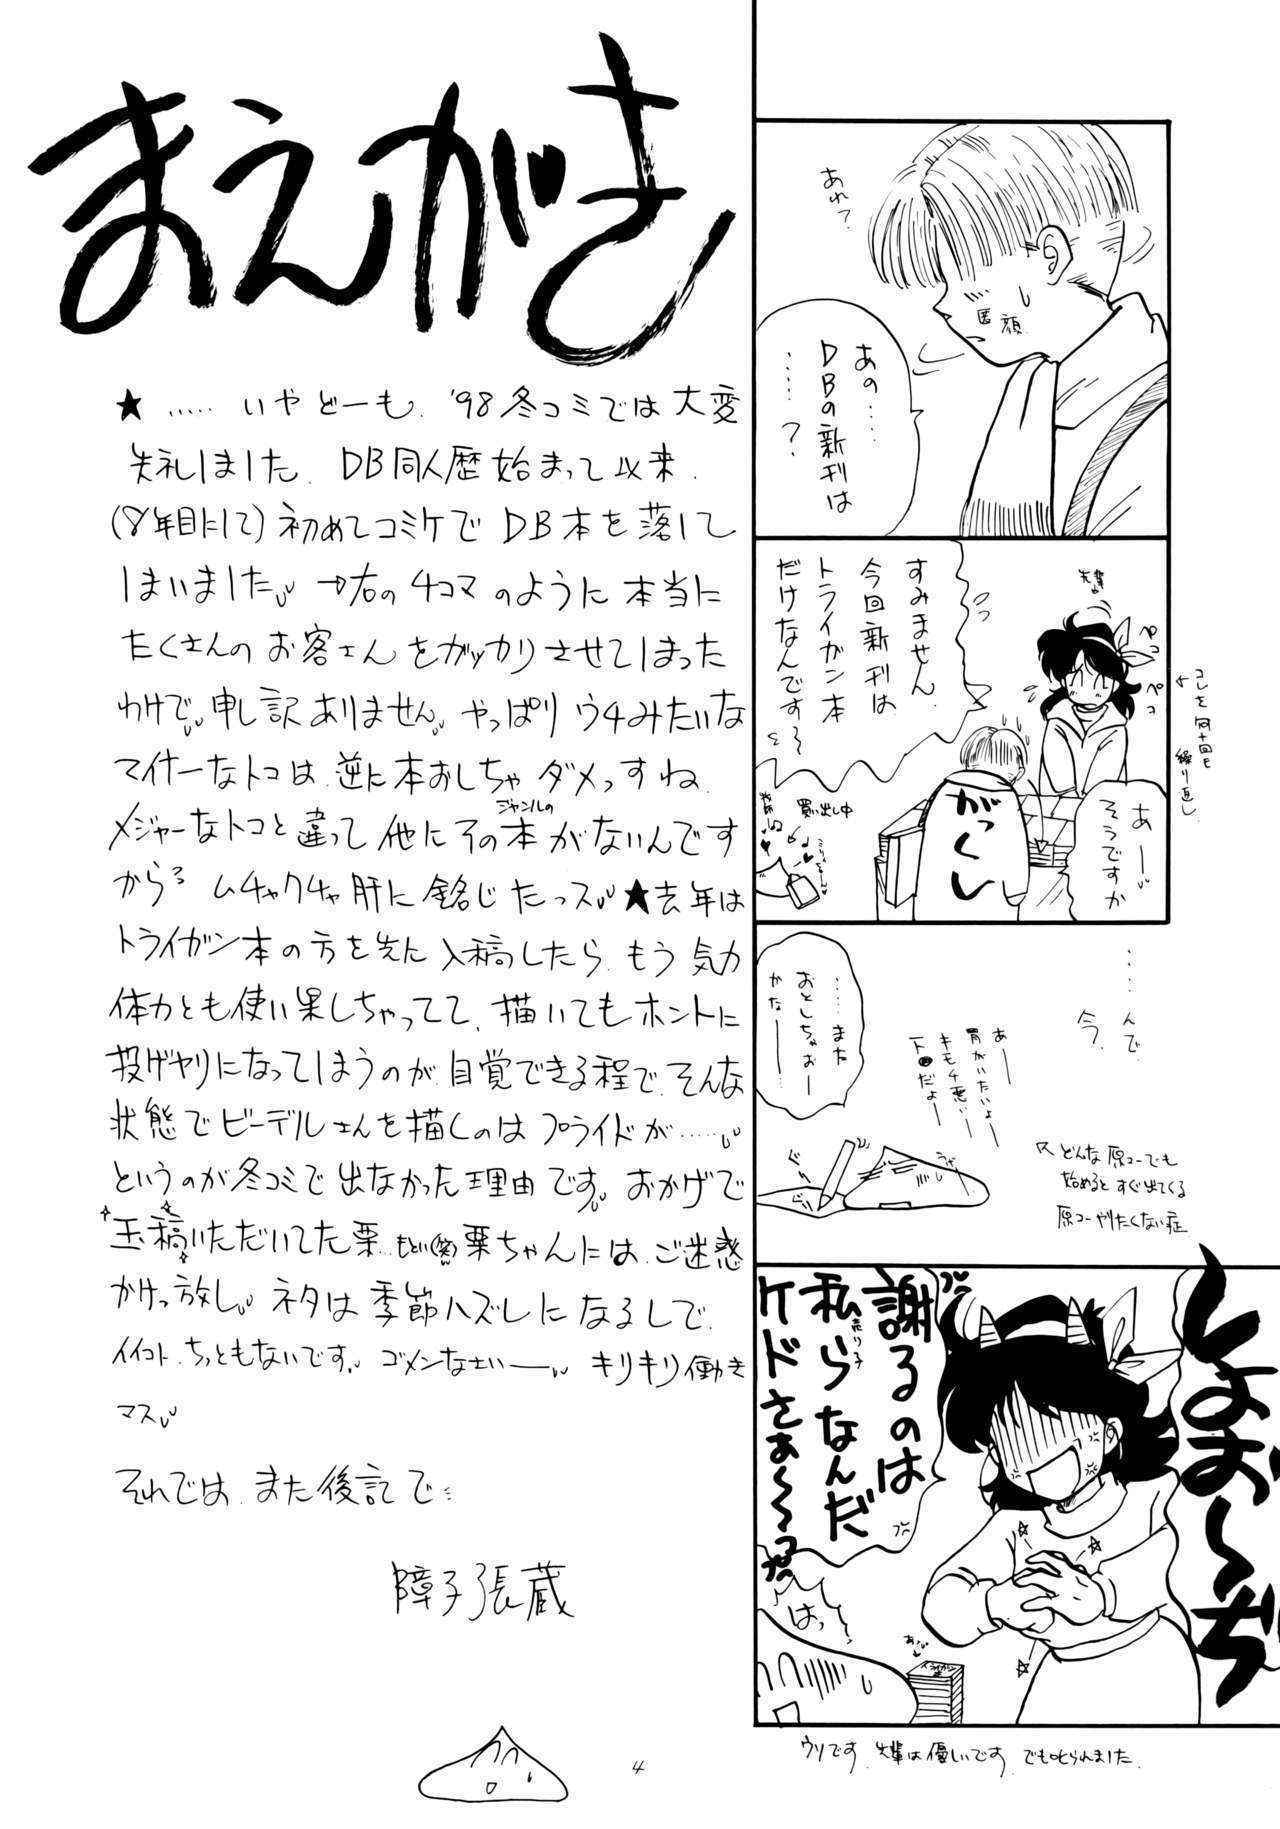 まえがき
★……いやどーも、'98冬コミでは大変
失礼しました。DB同人歴始まって以来、
(8年目にして)初めてコミケでDB本を落して
しまいました。→右の4コマのように本当に
たくさんのお客さんをガッカリさせてしまった
わけで、申し訳ありません。やっぱりウチみたいな
マイナーなトコは逆に本おしちゃダメっすね。
ジャンルの
メジャーなトコと違って他にその本がないんです
から。ムチャクチャ肝に銘じたっス。★去年は
トライガン本の方を先に入稿したら、もう気力
体力とも使い果しちゃってて、描いてもホントに
投げヤリになってしまうのが自覚できる程で、そんな
状態でビーデルさんを描くのはプライドが……。
というのが冬コミで出なかった理由です。おかげで
玉稿いただいてた栗…もとい(笑)栗ちゃんには、ご迷惑
かけっ放し。ネタは季節ハズレになるしで、
イイコト、ちっともないです。ゴメンなさいー。キリキリ働き
マス。
それでは、また後記で…
障子張蔵
4
あれ?
匿顔
あの……
DBの新刊は
……?
先輩
ペコ
ペコ
すみません
今回新刊は
トライガン本
だけなんです〜
コレを何十回も
繰り返し
あー…
そうですか
がっくし
買い出し中
……んで、
今。
……また
おとしちゃおー
かなー
あー
胃がいたいよー
キモチ悪いー
下●だよー
どんな原コーでも
始めるとすぐ出てくる
原コーやりたくない症
しよお〜ぢ
謝るのは
私らなんだ
売り子
ケドさぁ〜〜
はっ
トライガン本
ウソです。先輩は優しいです。でも叱られました。